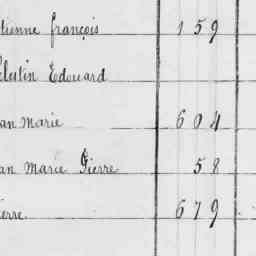 tienne françois 159
élestin Edouard
an marie 604
an marie Pierre 58
erre 679